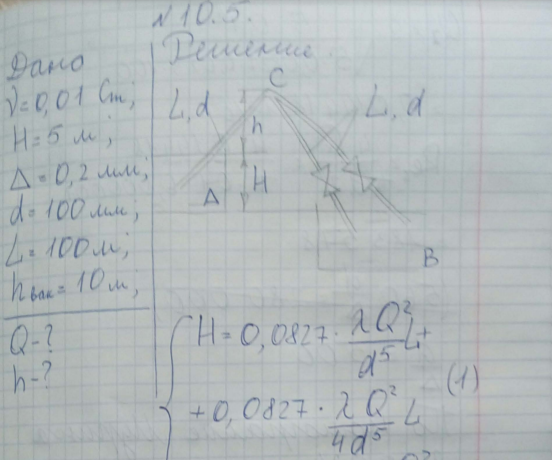 №10.5.
Дано
ν=0,01 Ст;
H=5 м;
Δ=0,2 мм;
d=100 мм;
L=100 м;
hвак=10 м;
Q-?
h-?
Решение.
C
L, d
h
L, d
Δ
H
B
H=0,0827·λQ²/d⁵ L+
+0,0827·λQ²/4d⁵ L
(1)